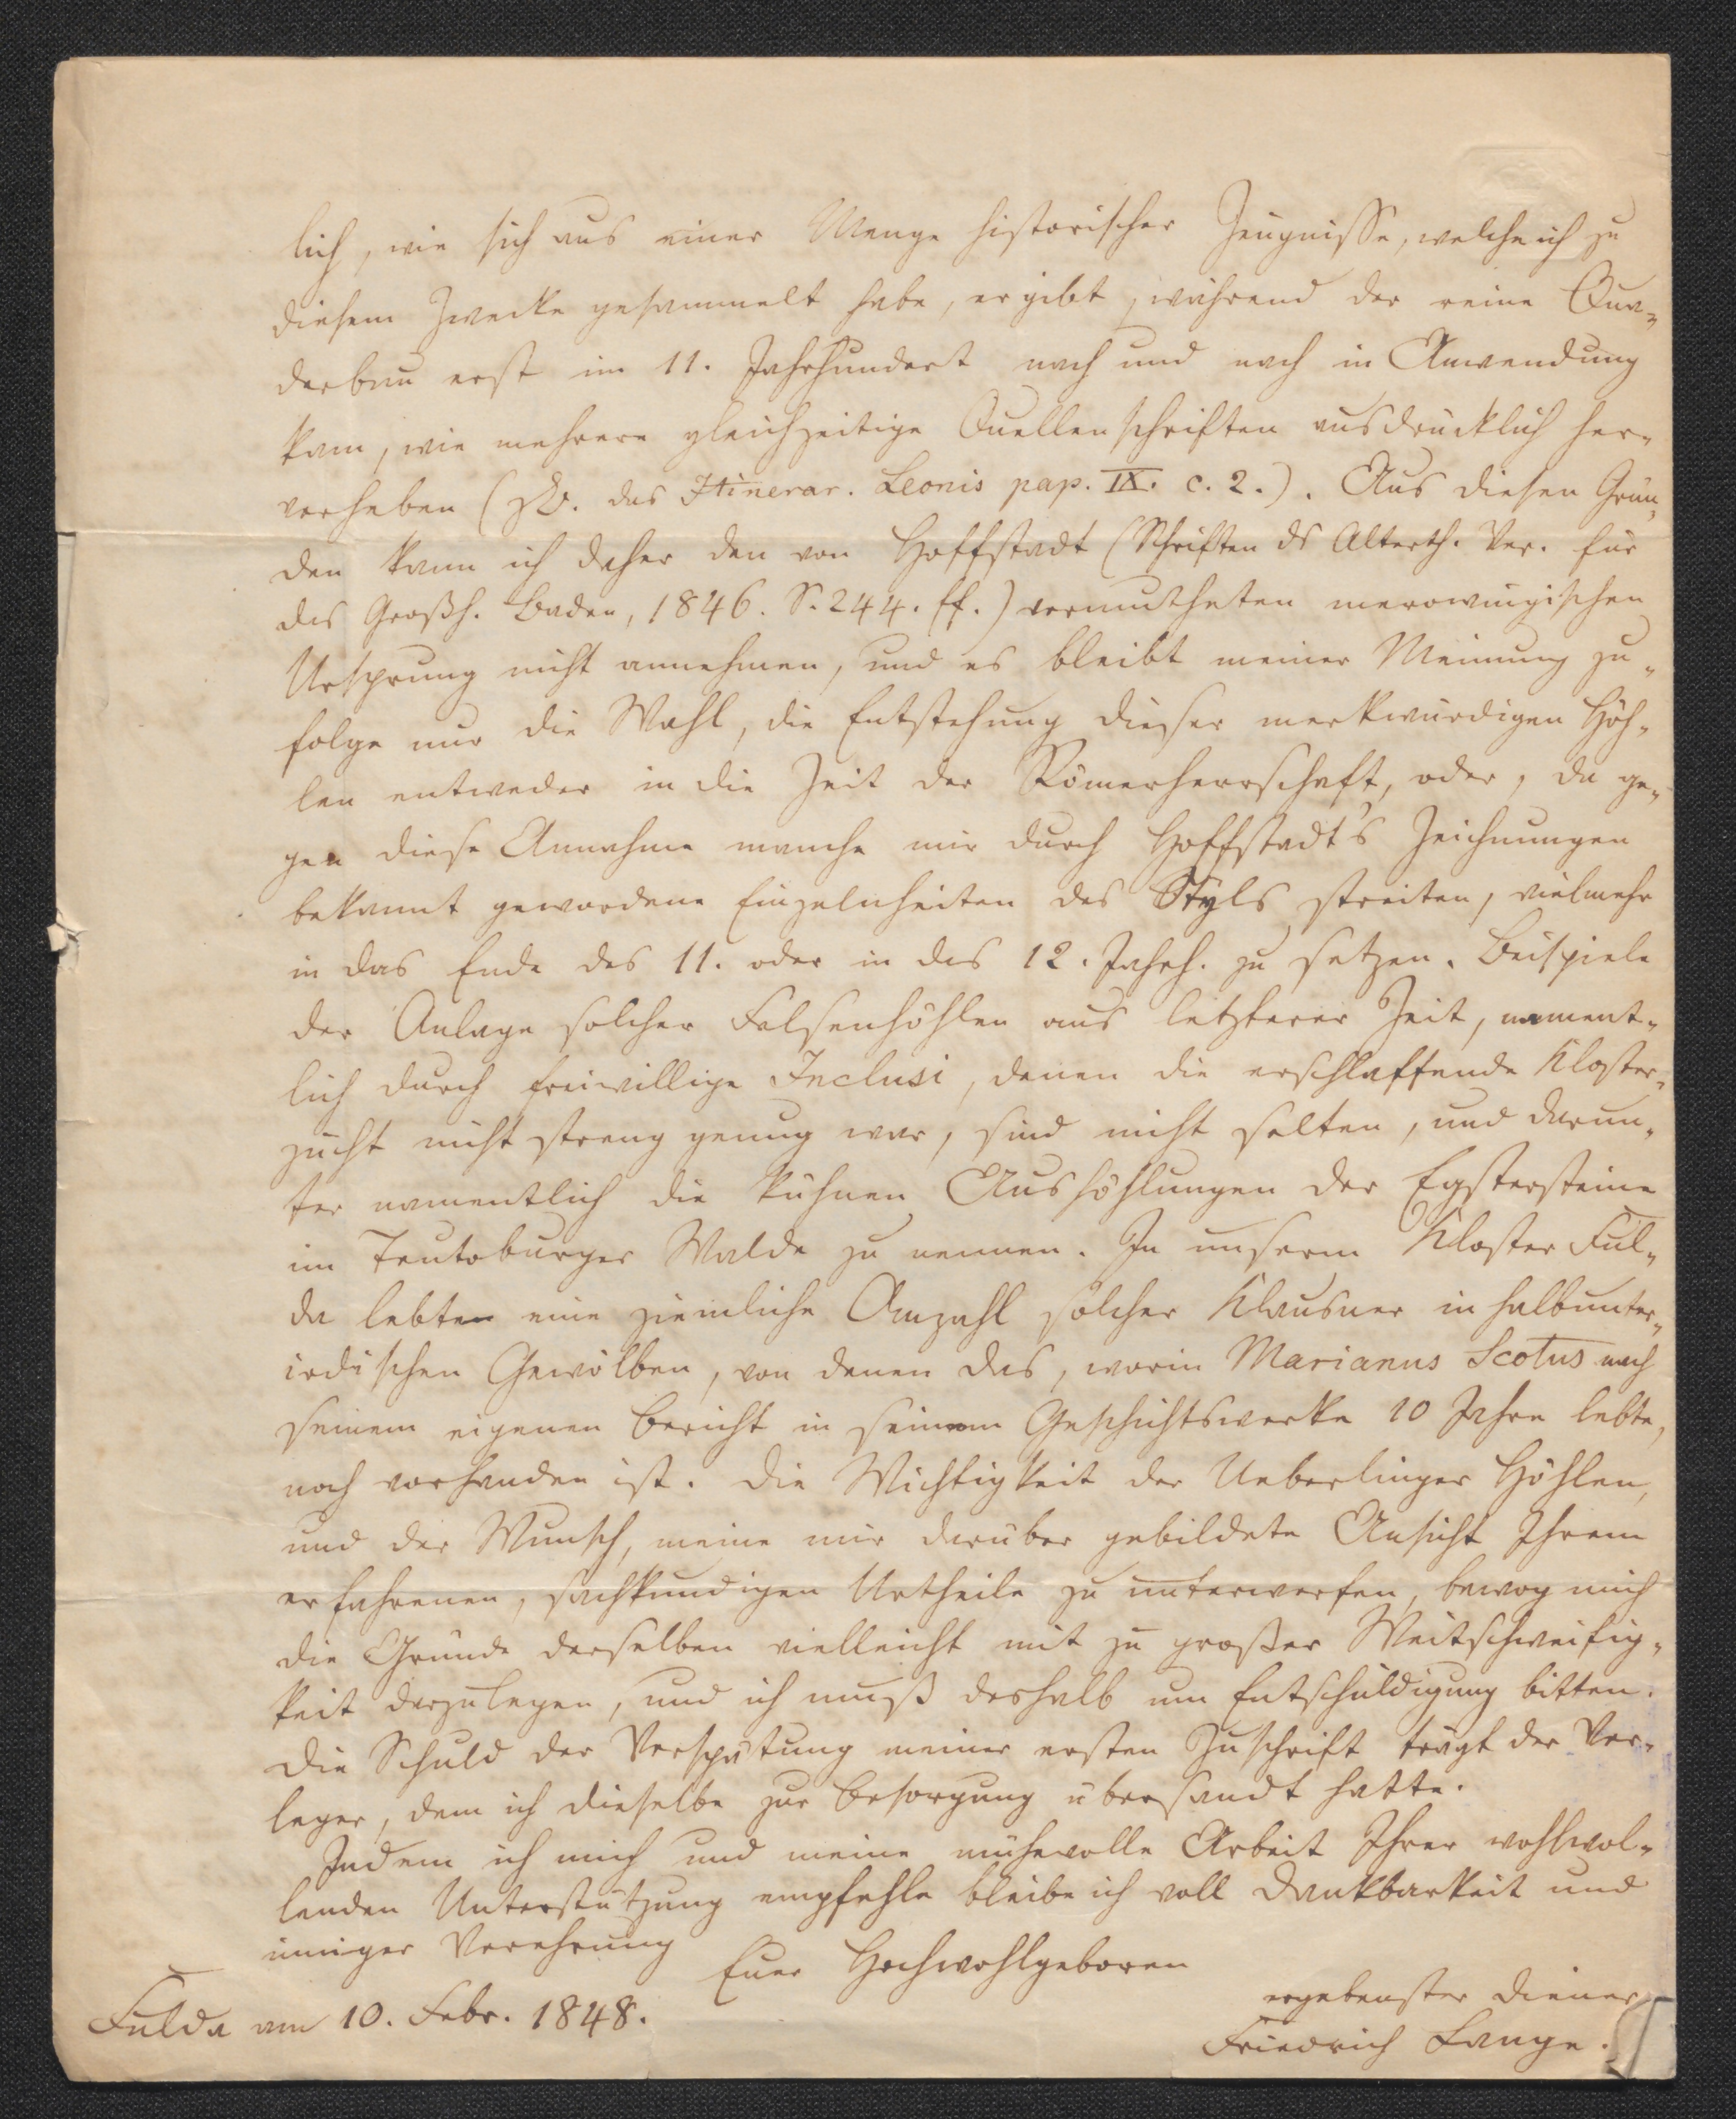 lich, wie sich aus einer Menge historischer Zeugnisse, welche ich zu
diesem Zwecke gesammelt habe, ergibt, während der reine Qua-
derbau erst im 11. Jahrhundert nach und nach in Anwendung
kam, wie mehrere gleichzeitige Quellenschriften ausdrücklich her-
vorheben (z.B. das Itinerar. Leonis pap. IX. c. 2.). Aus diesen Grün-
den kann ich daher den von Hoffstadt (Schriften ds Alterth. Ver. für
das Großh. Baden, 1846. S. 244. ff.) vermutheten merowingischen
Ursprung nicht annehmen, und es bleibt meiner Meinung zu-
folge nur die Wahl, die Entstehung dieser merkwürdigen Höh-
len entweder in die Zeit der Römerherrschaft, oder, da ge-
gen diese Annahme manche mir durch Hoffstadt's Zeichnungen
bekannt gewordene Einzelnheiten des Styls streiten, vielmehr
in das Ende des 11. oder in das 12. Jahrh. zu setzen. Beispiele
der Anlage solcher Felsenhöhlen aus letzterer Zeit, nament-
lich durch freiwillige Inclusi, denen die erschlaffende Kloster-
zucht nicht streng genug war, sind nicht selten, und darun-
ter namentlich die kühnen Aushöhlungen der Egstersteine
im Teutoburger Walde zu nennen. In unserm Kloster Ful-
da lebten eine ziemliche Anzahl solcher Klausner in halbunter-
irdischen Gewölben, von denen das, worin Marianus Scotus nach
seinem eigenen Bericht in seinem Geschichtswerke 10 Jahre lebte,
noch vorhanden ist. Die Wichtigkeit der Ueberlinger Höhlen,
und der Wunsch, meine mir darüber gebildete Ansicht Ihrem
erfahrenen, sachkundigen Urtheile zu unterwerfen, bewog mich
die Gründe derselben vielleicht mit zu großer Weitschweifig-
keit darzulegen, und ich muß deshalb um Entschuldigung bitten.
Die Schuld der Verspätung meiner ersten Zuschrift trägt der Ver-
leger, dem ich dieselbe zur Besorgung übersandt hatte.
Indem ich mich und meine mühevolle Arbeit Ihrer wohlwol-
lenden Unterstützung empfehle bleibe ich voll Dankbarkeit und
inniger Verehrung
Euer Hochwohlgeboren
ergebenster Diener
Fulda am 10. Febr. 1848.
Friedrich Lange.